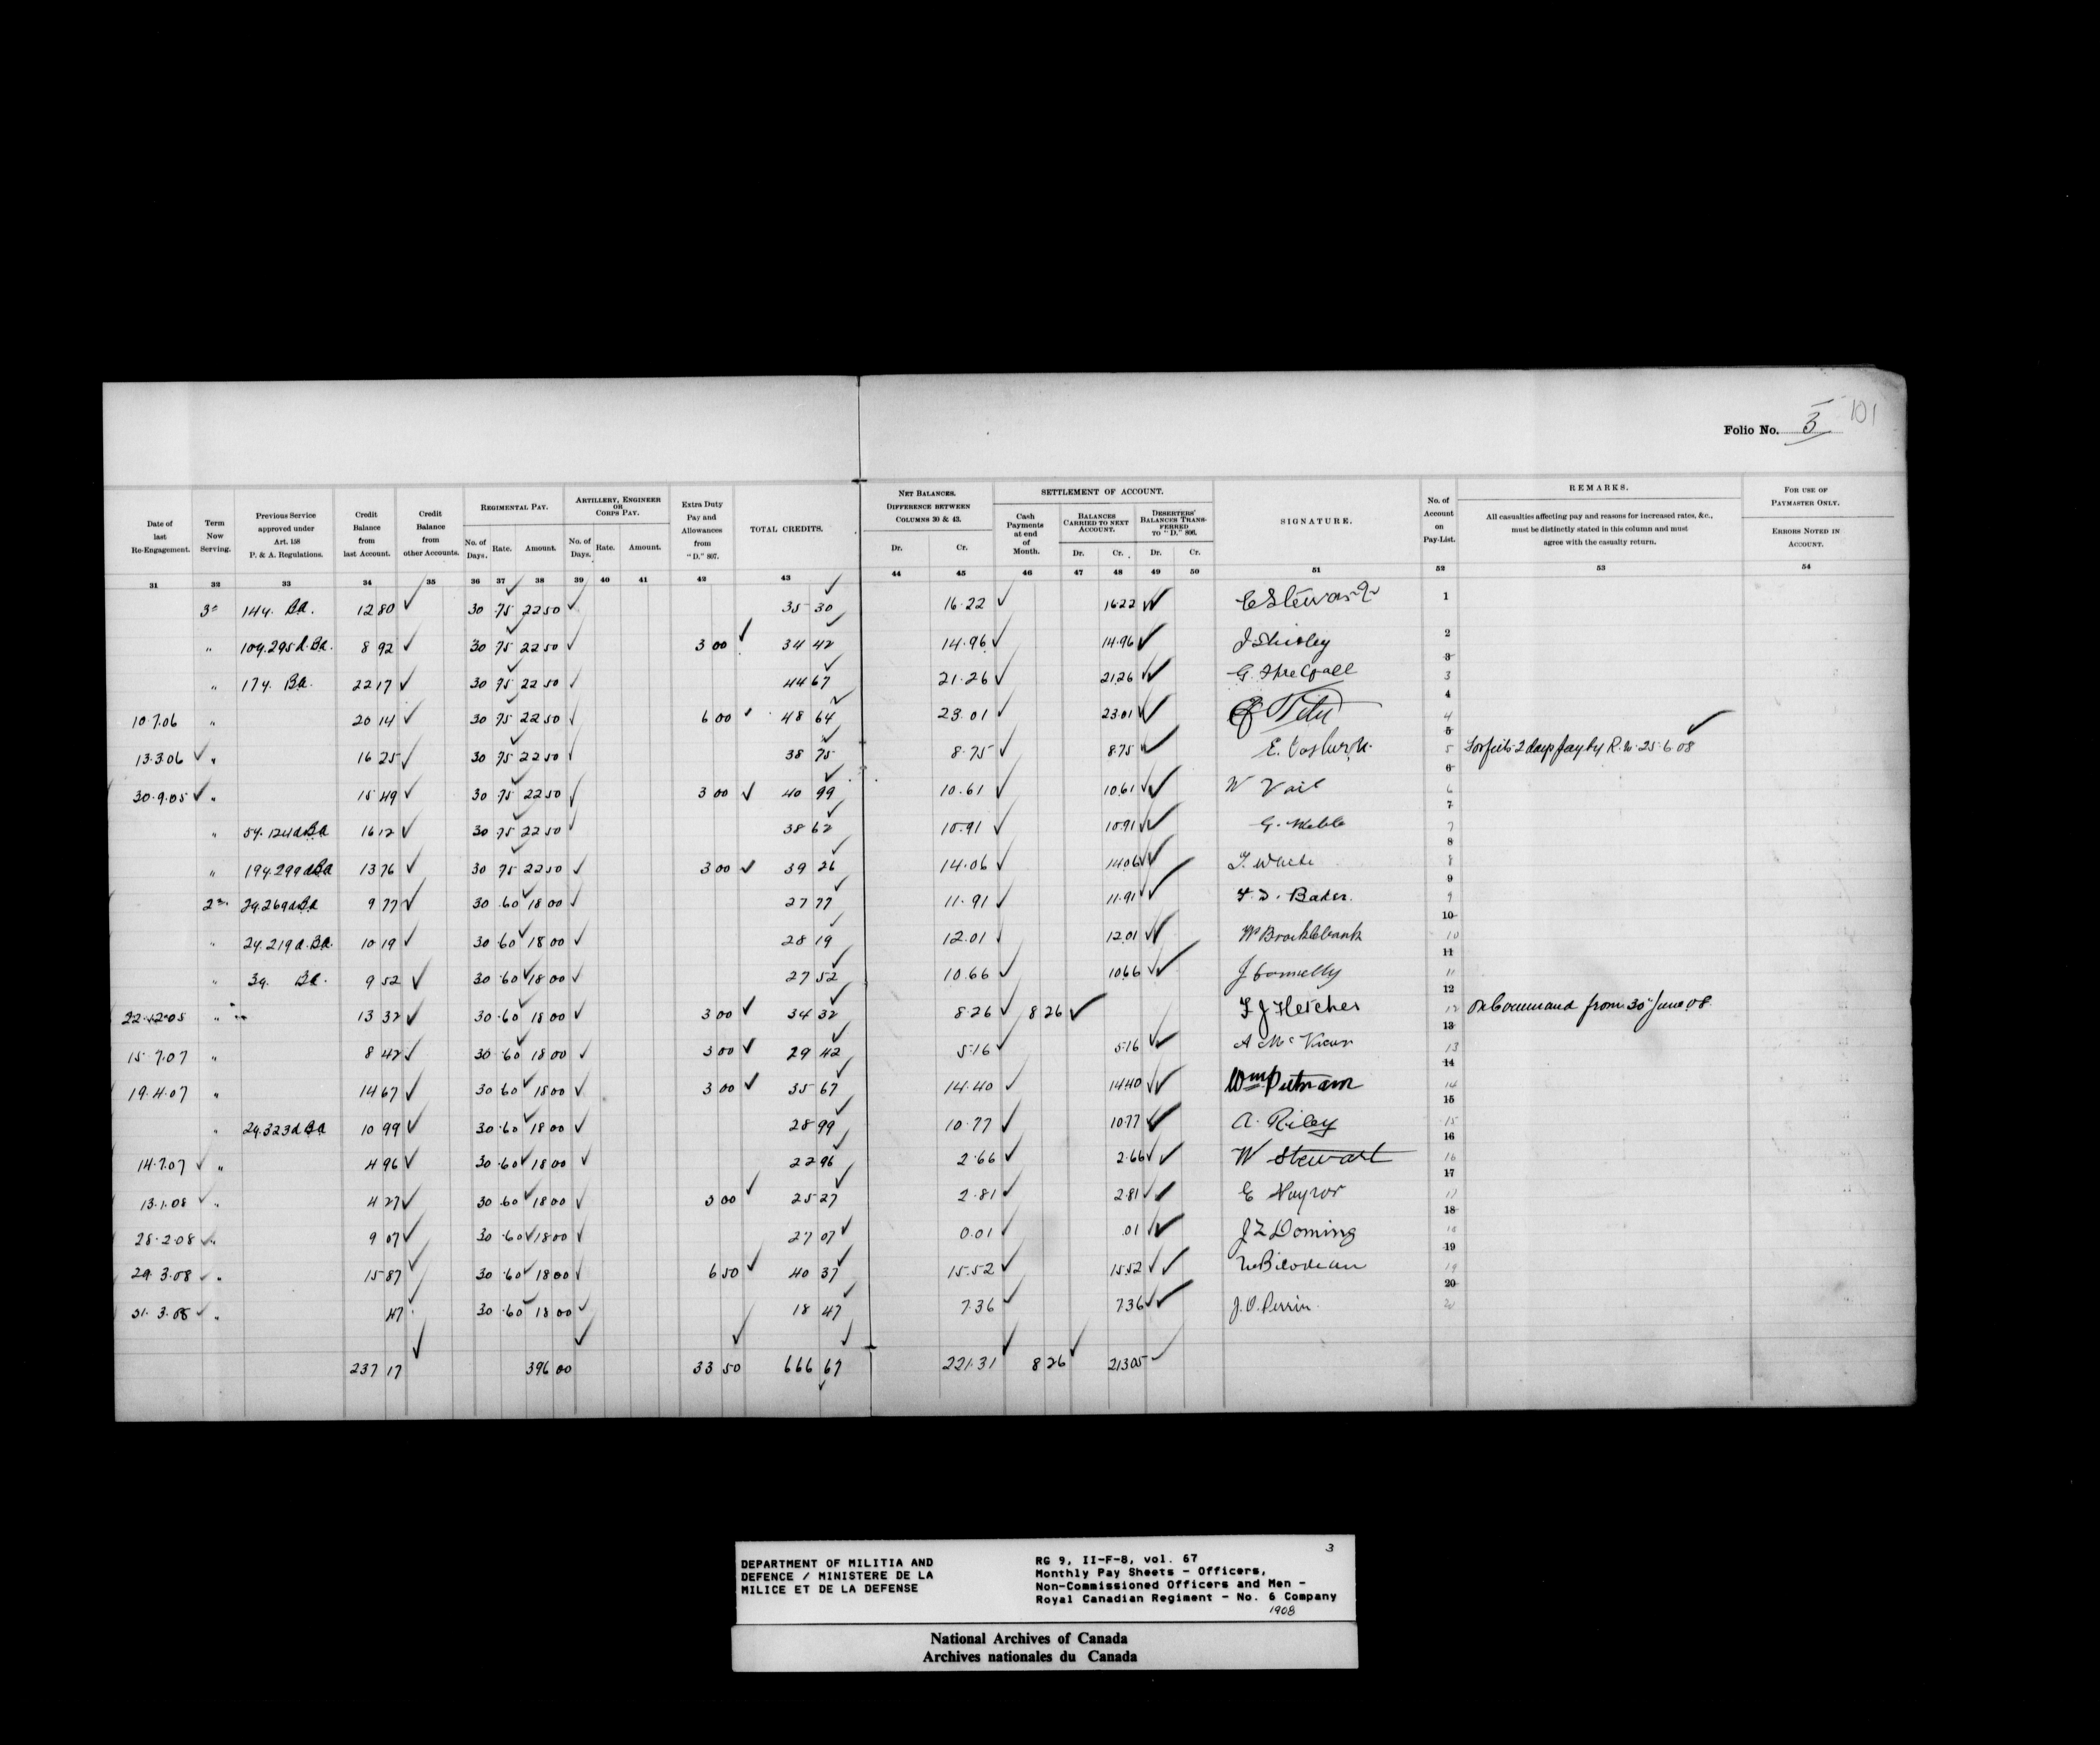 101
Folio No. 3
Date of last Re-Engagement. Term Now Serving. Previous Service approved under Art. 158 P. & A. Regulations. Credit Balance from last Account. Credit Balance from other Accounts. REGIMENTAL PAY. No. of Days. Rate. Amount. ARTILLERY, ENGINEER OR CORPS PAY. No. of Days. Rate. Amount. Extra Duty Pay and Allowances from "D." 807. TOTAL CREDITS. NET BALANCES. DIFFERENCE BETWEEN COLUMNS 30 & 43. Dr. Cr. SETTLEMENT OF ACCOUNT. Cash Payments at end of Month. BALANCES CARRIED TO NEXT ACCOUNT. Dr. Cr. DESERTERS' BALANCES TRANSFERRED TO "D." 806. Dr. Cr. SIGNATURE. No. of Account on Pay-List. REMARKS. All casualties affecting pay and reasons for increased rates, &c., must be distinctly stated in this column and must agree with the casualty return. FOR USE OF PAYMASTER ONLY. ERRORS NOTED IN ACCOUNT.
31 32 33 34 35 36 37 38 39 40 41 42 43 44 45 46 47 48 49 50 51 52 53 54
14y. Ba. 12 80 30 .75 22 50 35 30 16.22 16 22 C Stewart 1
" 10y.295d.Ba. 8 92 30 75 22 50 3 00 34 42 14.96 14.96 J Shirley 2
" 17y. Ba. 22 17 30 75 22 50 44 67 21.26 21 26 G. Threlfall 3 3
10.7.06 " 20 14 30 75 22 50 6 00 48 64 23.01 23 01 4 4
13.3.06 " 16 25 30 75 22 50 38 75 8.75 8.75 5 5 Forfeits 2 days pay by R.W. 25.6.08
30.9.05 " 15 49 30 75 22 50 3 00 40 99 10.61 10 61 W Vail 6 6
" 5y.124d Ba 16 12 30 75 22 50 38 62 10.91 10 91 G. Webb 7 7
" 19y.299d Ba 13 76 30 75 22 50 3 00 39 26 14.06 14 06 T. White 8 8
2y.269d Ba 9 77 30 .60 18 00 27 77 11.91 11.91 F. D. Bader. 9 9
" 2y.219d.Ba. 10 19 30 .60 18 00 28 19 12.01 12.01 W Brocklebank 10 10
" 3y. Ba. 9 52 30 .60 18 00 27 52 10.66 10 66 J Connelly 11 11
22.12.05 " 13 32 30 .60 18 00 3 00 34 32 8.26 8 26 F J Fletcher 12 12 On Command from 30" June 08.
15.7.07 " 8 42 30 .60 18 00 3 00 29 42 5.16 5 16 A McVicar 13 13
19.4.07 " 14 67 30 60 18 00 3 00 35 67 14.40 14 40 Wm Putnam 14 14
" 2y.323d Ba 10 99 30 .60 18 00 28 99 10.77 10 77 A. Riley 15 15
14.7.07 " 4 96 30 .60 18 00 22 96 2.66 2.66 W Stewart 16 16
13.1.08 " 4 27 30 .60 18 00 3 00 25 27 2.81 2 81 E Naylor 17 17
28.2.08 " 9 07 30 .60 18 00 27 07 0.01 .01 J Z Doming 18 18
29.3.08 " 15 87 30 .60 18 00 6 50 40 37 15.52 15 52 Bilodeau 19 19
31.3.08 " 47 30 .60 18 00 18 47 7.36 7 36 J. O. Perrin 20 20
237 17 396 00 33 50 666 67 221.31 8 26 213 05
3
DEPARTMENT OF MILITIA AND
DEFENCE / MINISTERE DE LA
MILICE ET DE LA DEFENSE
RG 9, II-F-8, vol. 67
Monthly Pay Sheets - Officers,
Non-Commissioned Officers and Men -
Royal Canadian Regiment - No. 6 Company
1908
National Archives of Canada
Archives nationales du Canada